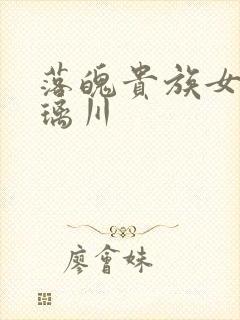 落魄貴族女
璃川
廖會妹